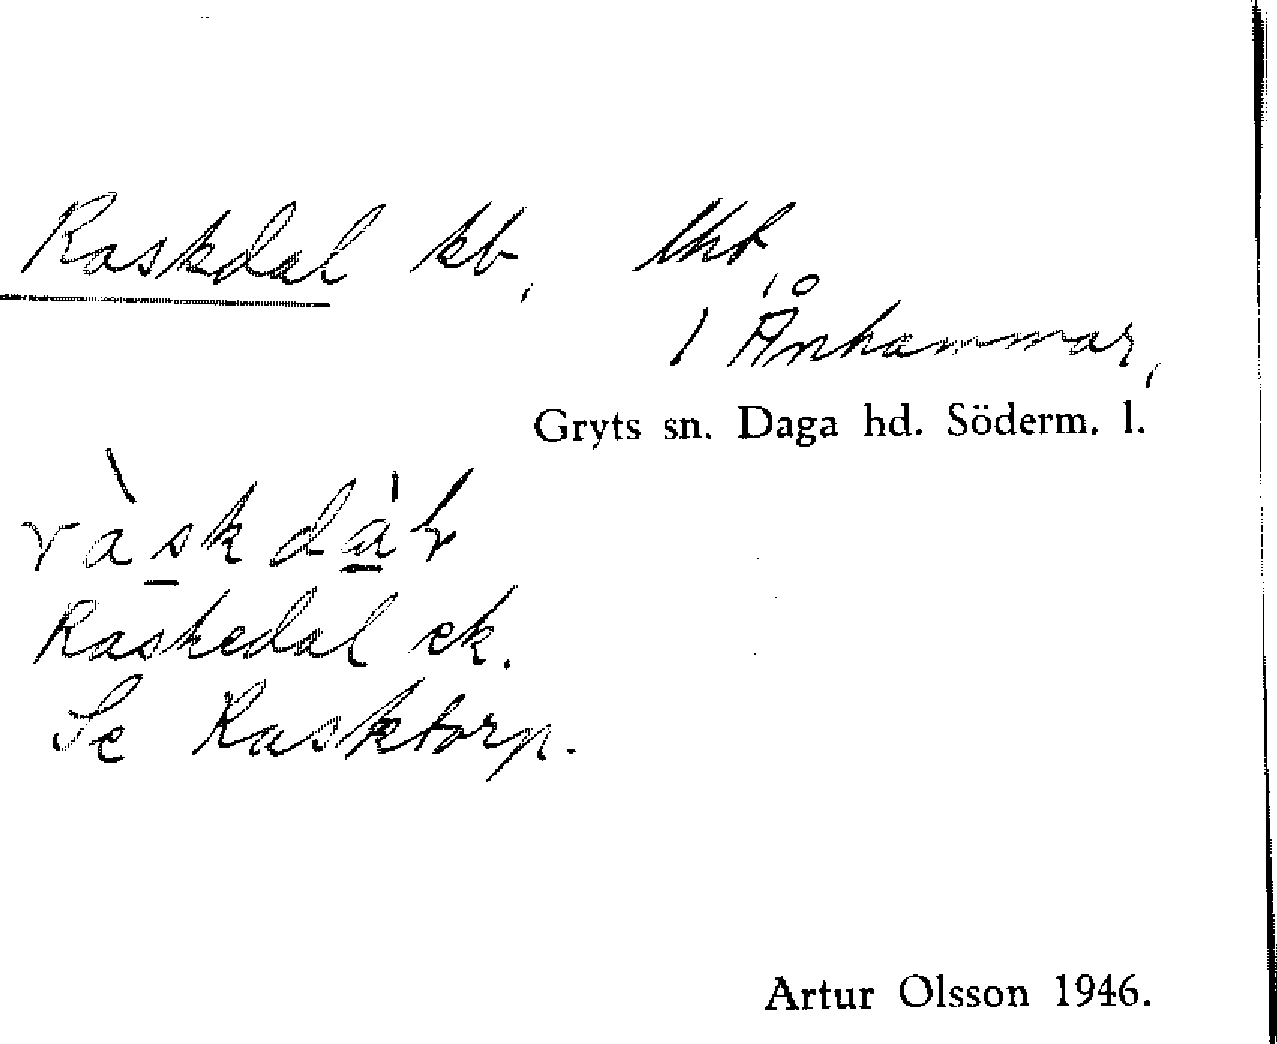 Raskdal kb,
1 Ånhammar,
Gryts sn. Daga hd. Söderm. l.
Raskedal ek.
Se Rasktorp.
Artur Olsson 1946.